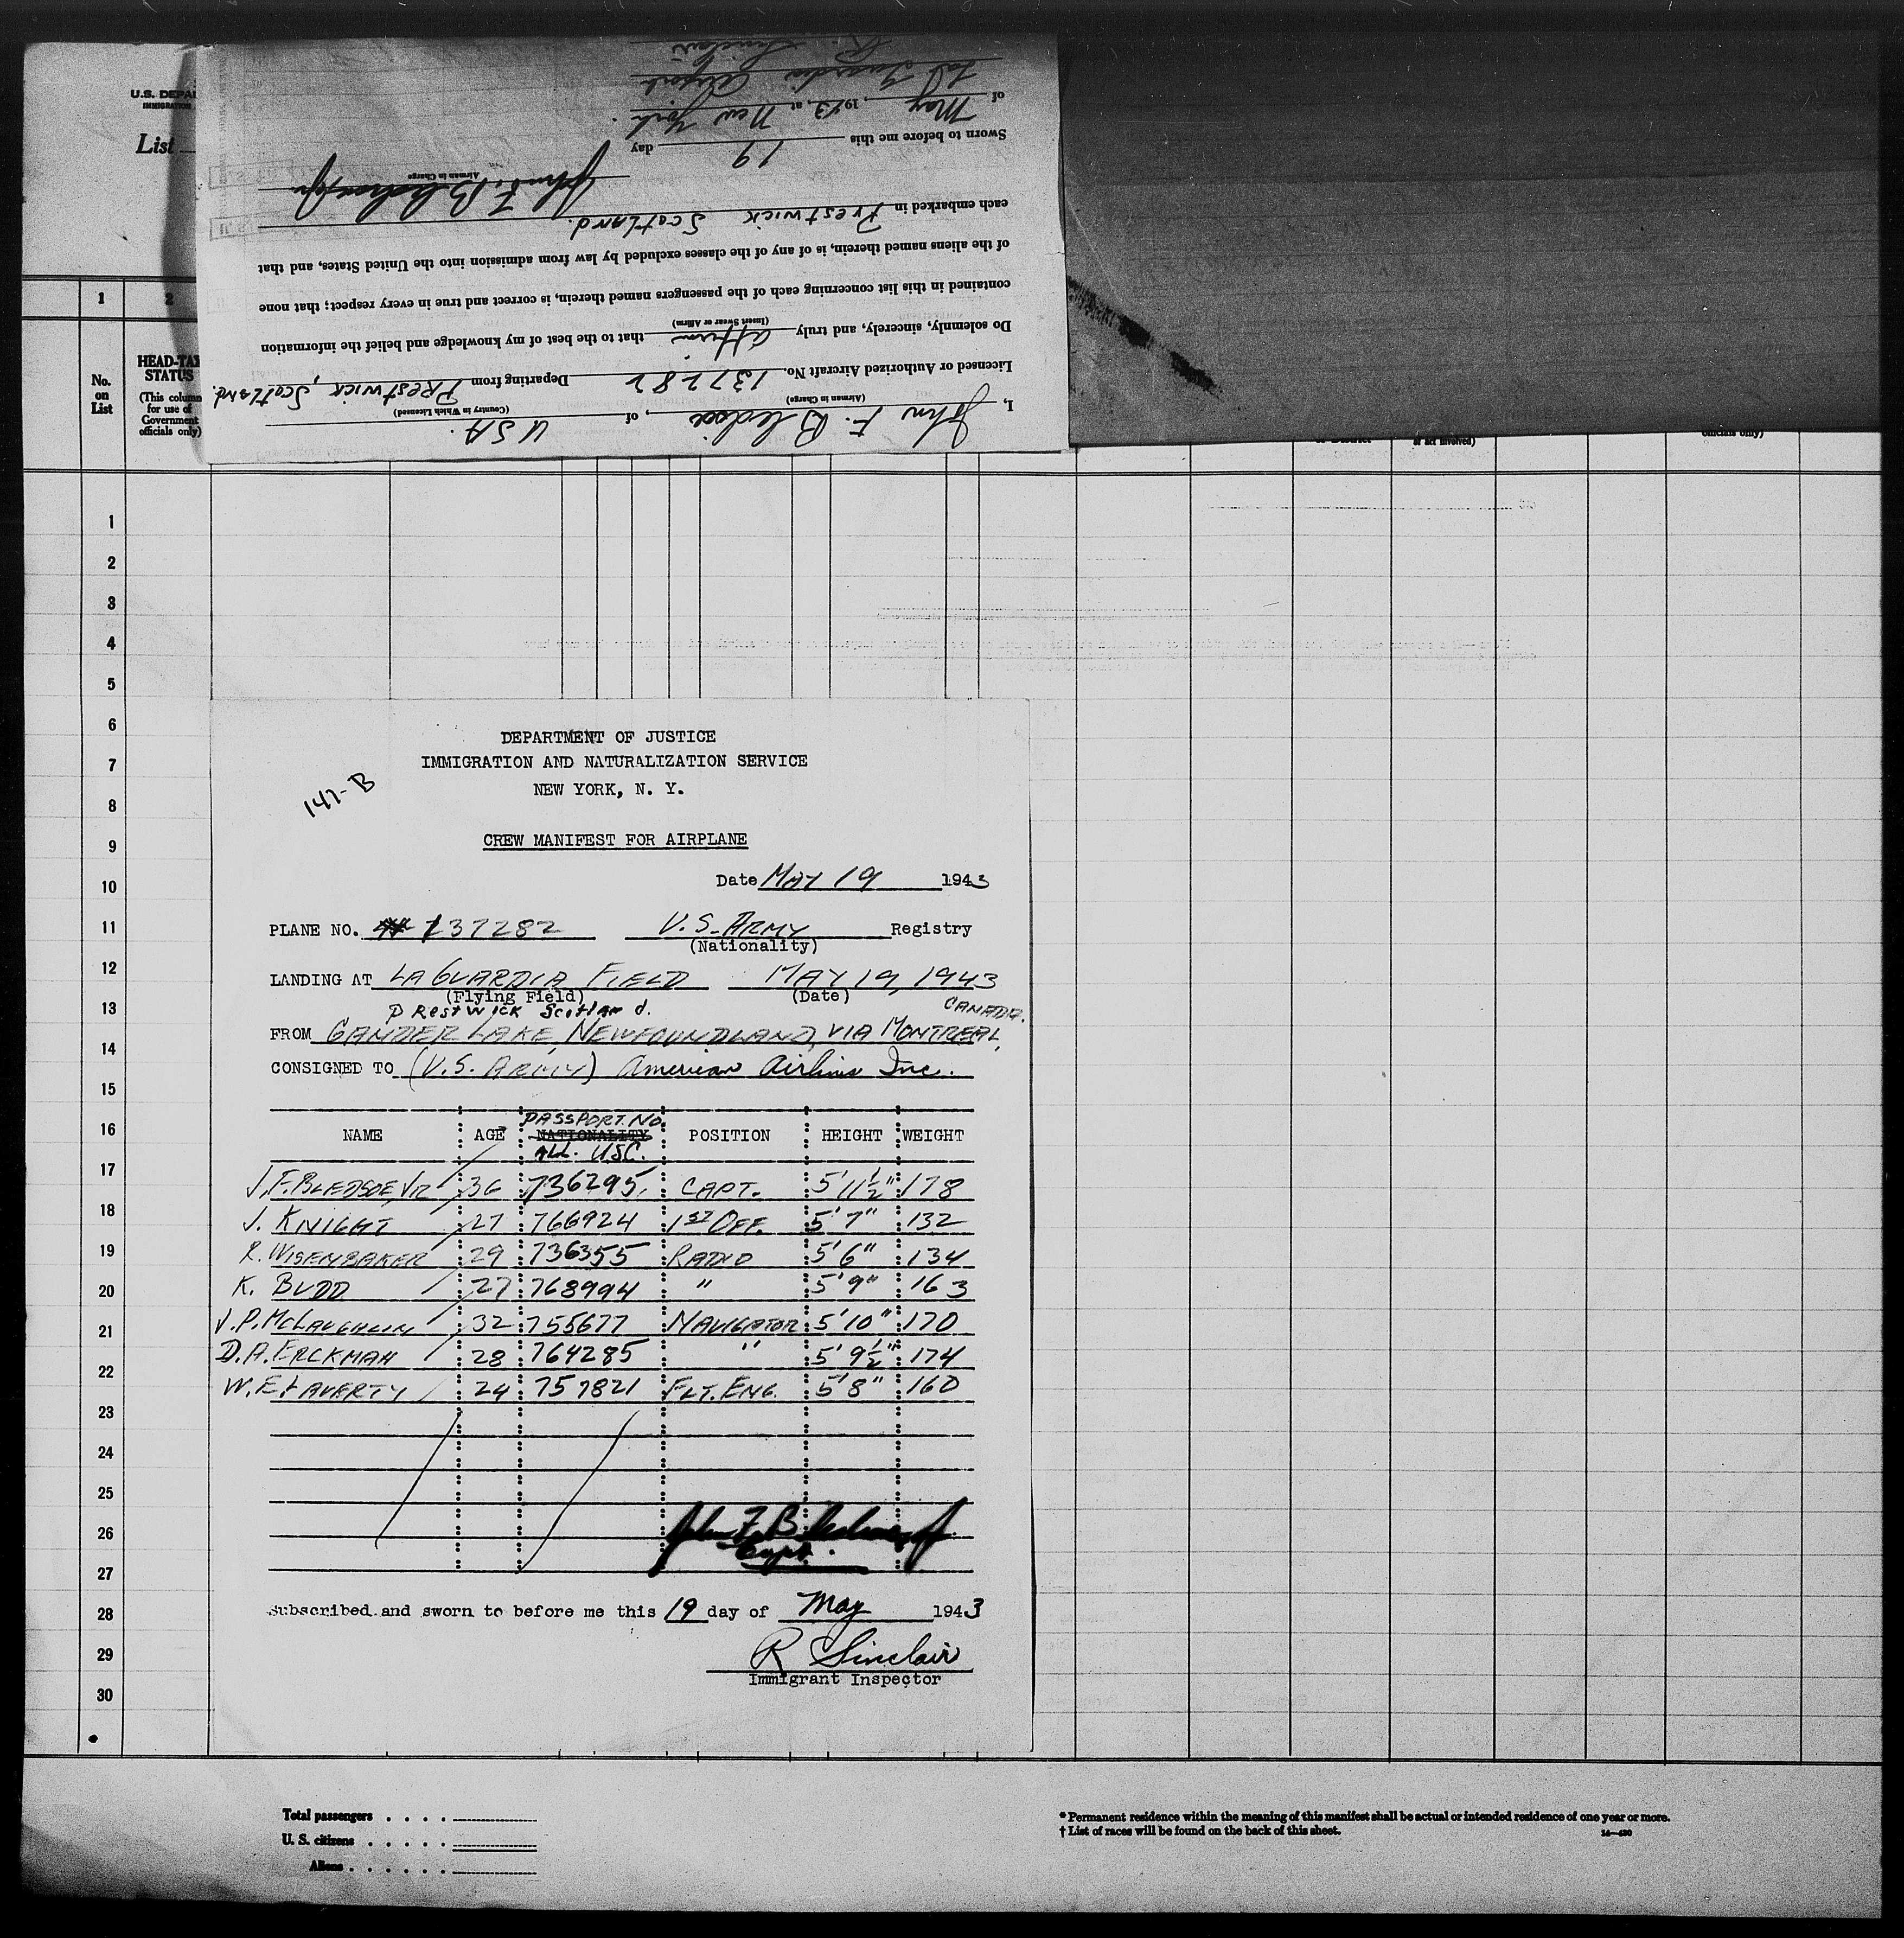 U.S. DEPA
IMMIGRATION
List
1
2
No.
on
List
HEAD-TAX
STATUS
(This column
for use of
Government
officials only)
I, John F. Bledsoe, of USA.
(Airman in Charge) (Country in Which Licensed)
Licensed or Authorized Aircraft No. 137282 Departing from Prestwick, Scotland.
Do solemnly, sincerely, and truly affirm that to the best of my knowledge and belief the information
(Insert Swear or Affirm)
contained in this list concerning each of the passengers named therein, is correct and true in every respect; that none
of the aliens named therein, is of any of the classes excluded by law from admission into the United States, and that
each embarked in Prestwick Scotland.
John F. Bledsoe Jr
Airman in Charge
Sworn to before me this 19 day
of May, 1943, at New York.
La Guardia Airport
R. Sinclair
of act involved)
officials only)
1
2
3
4
5
6
7
8
9
10
11
12
13
14
15
16
17
18
19
20
21
22
23
24
25
26
27
28
29
30
DEPARTMENT OF JUSTICE
IMMIGRATION AND NATURALIZATION SERVICE
NEW YORK, N. Y.
147-B
CREW MANIFEST FOR AIRPLANE
Date MAY 19 1943
PLANE NO. 137282 U.S. ARMY Registry
(Nationality)
LANDING AT LA GUARDIA FIELD MAY 19, 1943
(Flying Field) (Date)
Prestwick Scotland. CANADA.
FROM GANDER LAKE, NEWFOUNDLAND, VIA MONTREAL,
CONSIGNED TO (U.S. ARMY) American Airlines Inc.
PASSPORT. NO.
NAME AGE NATIONALITY POSITION HEIGHT WEIGHT
ALL. USC.
J.F. BLEDSOE, JR 36 736295 CAPT. 5' 11 1/2" 178
J. KNIGHT 27 766924 1ST OFF. 5' 7" 132
R. WISENBAKER 29 736355 RADIO 5' 6" 134
K. BUDD 27 768994 " 5' 9" 163
J.P. MCLAUGHLIN 32 755677 NAVIGATOR 5' 10" 170
D.A. ERCKMAN 28 764285 " 5' 9 1/2" 174
W.E. LAVERTY 24 757821 FLT. ENG. 5' 8" 160
John F. Bledsoe Jr
Capt.
Subscribed and sworn to before me this 19 day of May 1943
R Sinclair
Immigrant Inspector
Total passengers
U. S. citizens
Aliens
* Permanent residence within the meaning of this manifest shall be actual or intended residence of one year or more.
† List of races will be found on the back of this sheet.